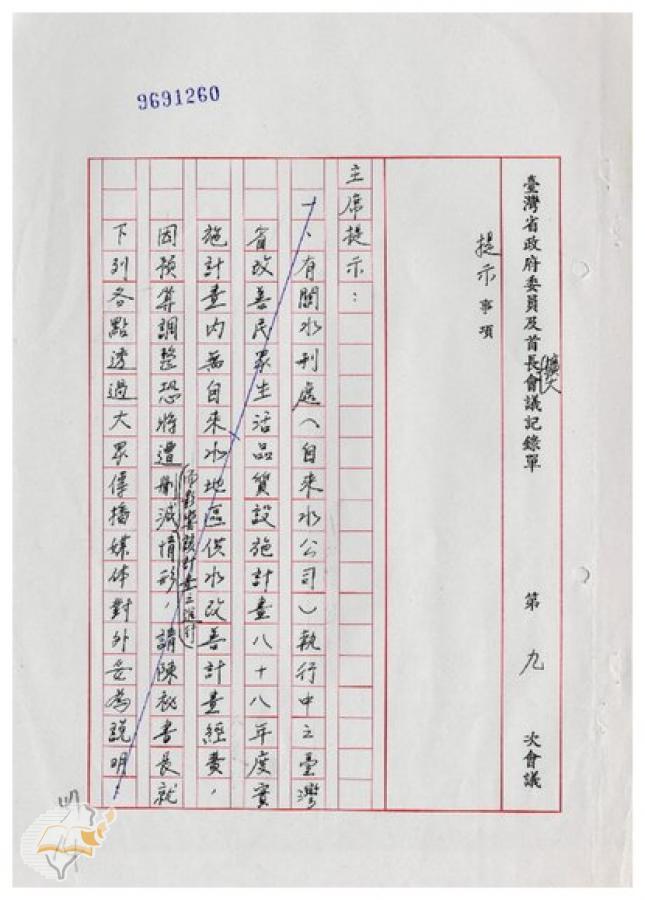 9691260
臺灣省政府委員及首長擴大會議記錄單 第九次會議
提示事項
主席提示：
一、有關水利處（自來水公司）執行中之臺灣
省改善民眾生活品質設施計畫八十八年度實
施計畫內無自來水地區供水改善計畫經費，
因預算調整恐將遭刪減情形，請陳祕書長就
而影響該計畫之進行
下列各點透過大眾傳播媒体對外妥為說明，